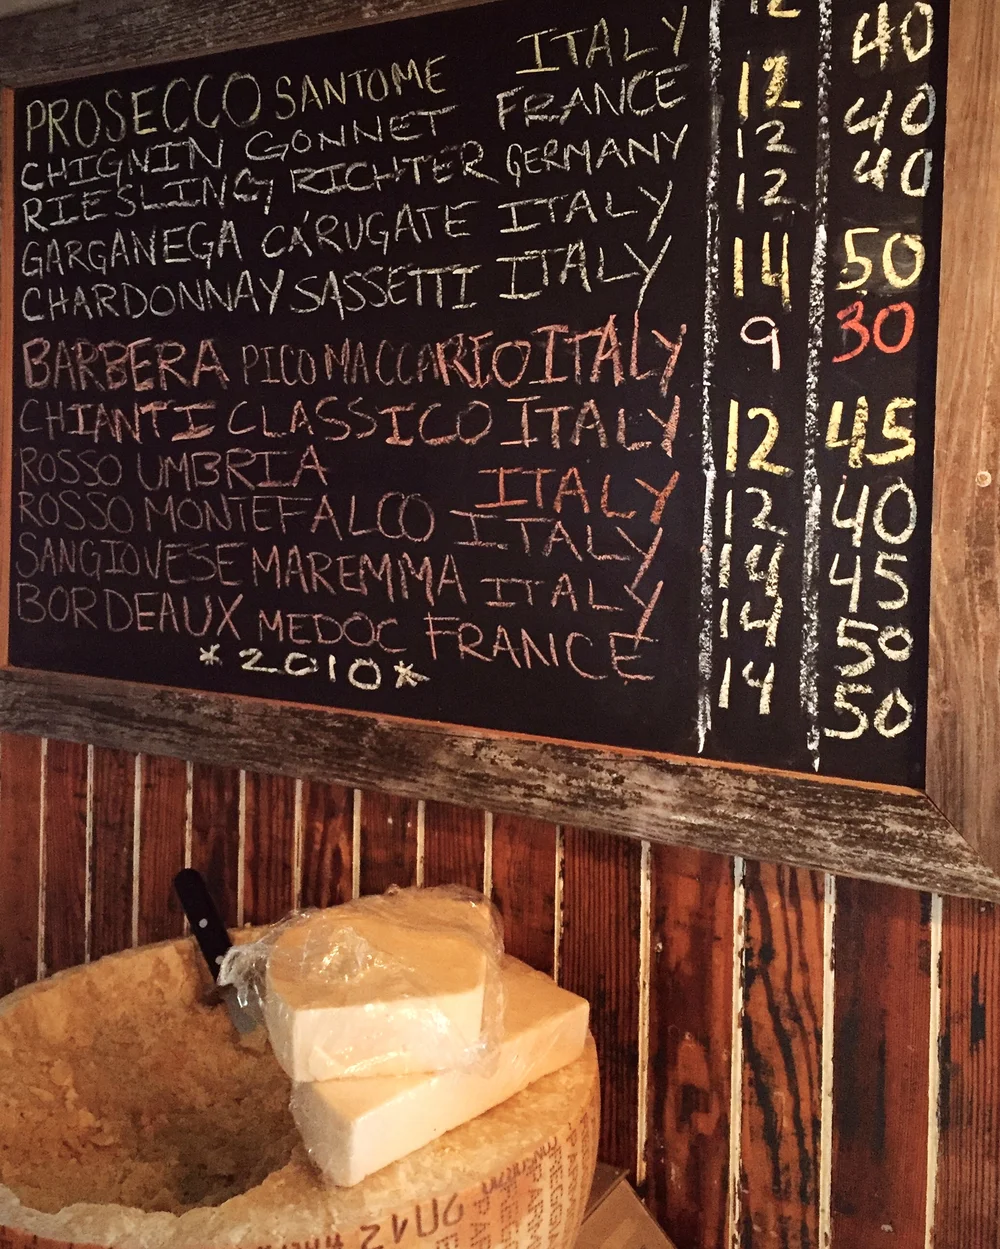 PROSECCO SANTOME ITALY 12
CHIGNIN GONNET FRANCE 12 40
RIESLING RICHTER GERMANY 12 40
GARGANEGA CARUGATE ITALY 12 40
CHARDONNAY SASSETTI ITALY 14 50
BARBERA PICO MACCARIO ITALY 9 30
CHIANTI CLASSICO ITALY 12 45
ROSSO UMBRIA ITALY 12 40
ROSSO MONTEFALCO ITALY 14 45
SANGIOVESE MAREMMA ITALY 14 50
BORDEAUX MEDOC FRANCE 14 50
*2010*